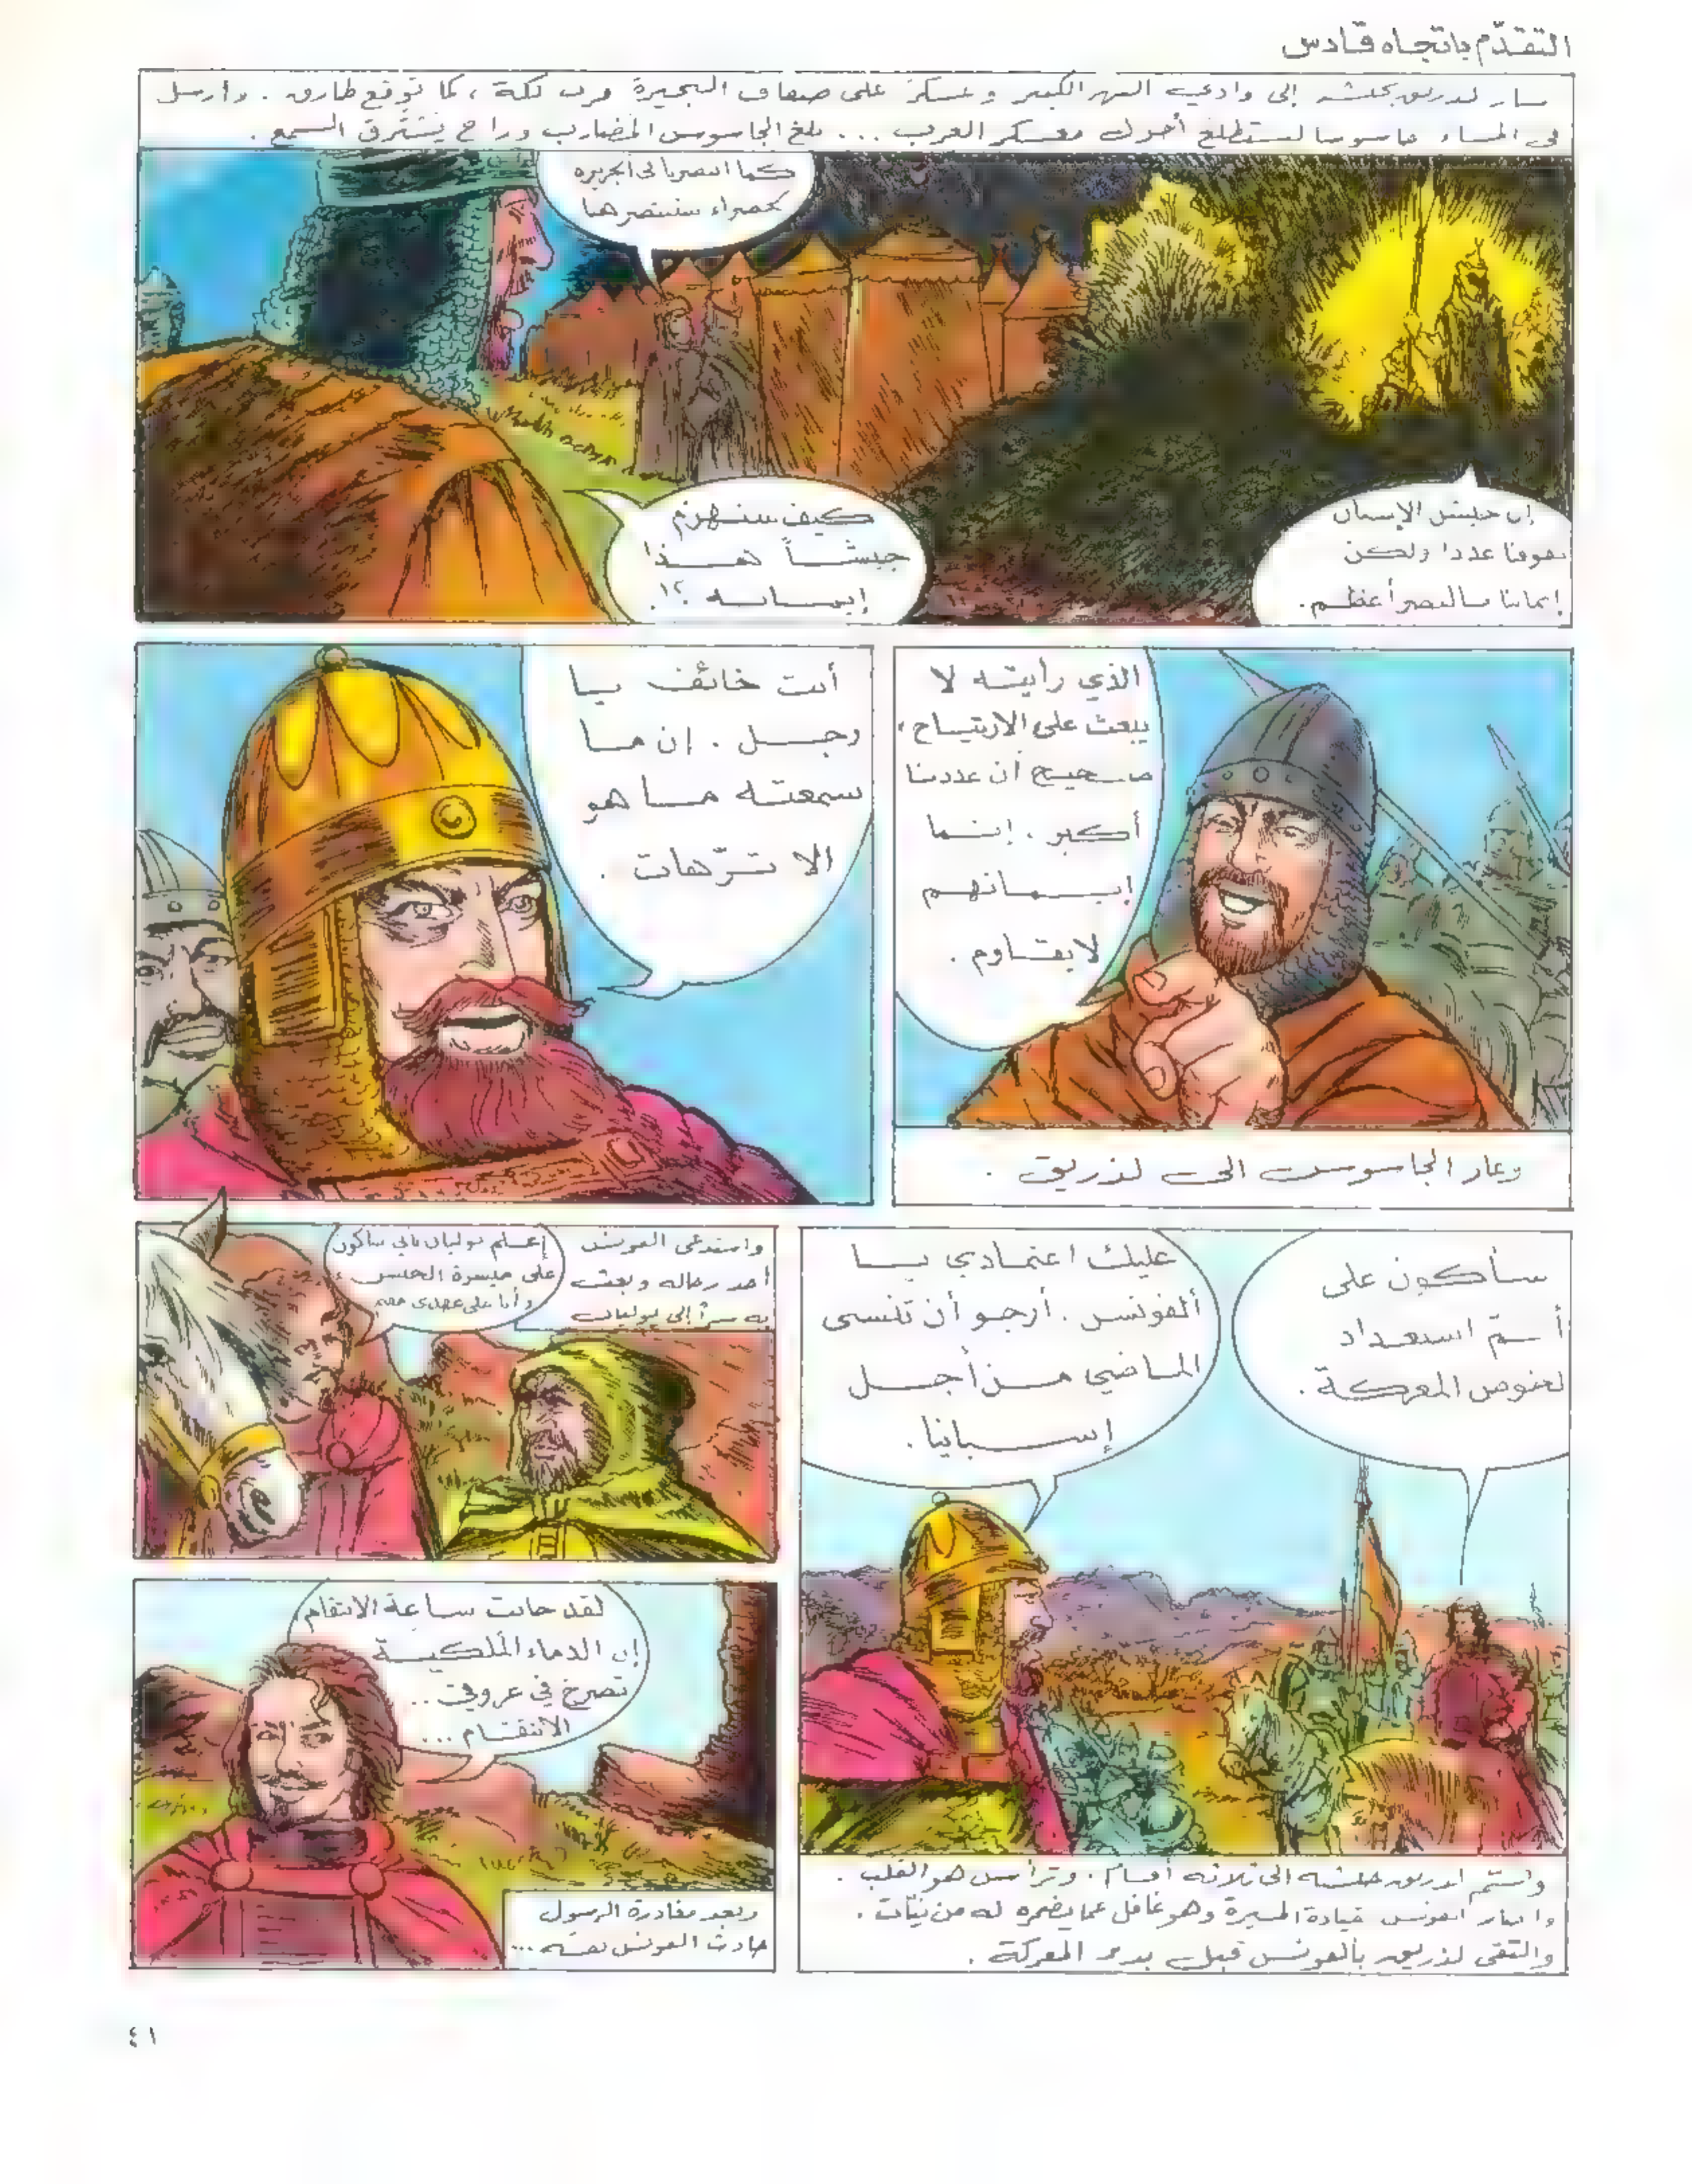 التقدّم باتجاه قادس
سار لذريق بجيشه إلى وادي النهر الكبير وعسكر على ضفاف البحيرة قرب لكة، كما توقع طارق. وأرسل
في المساء جاسوسا ليستطلع أحوال معسكر العرب... بلغ الجاسوس المضارب وراح يسترق السمع.
كما انتصرنا في الجزيرة
الخضراء سننتصر هنا
إن جيش الإسبان
يفوقنا عددا ولكن
إيماننا بالنصر أعظم.
كيف سنهزم
جيشاً هذا
إيمانه؟!
الذي رأيته لا
يبعث على الارتياح،
صحيح أن عددنا
أكبر. إنما
إيمانهم
لا يقاوم.
وعاد الجاسوس الى لذريق.
أنت خائف يا
رجل. إن ما
سمعته ما هو
الا ترّهات.
سأكون على
أتمّ استعداد
لخوض المعركة.
عليك اعتمادي يا
ألفونس. أرجو أن تنسى
الماضي من أجل
إسبانيا.
وقسّم لذريق جيشه الى ثلاثة أقسام. وترأس هو القلب.
ألفونس قيادة الميسرة وهو غافل عما يضمره له من نيّات.
والتقى لذريق بألفونس قبل بدء المعركة.
واستدعى ألفونس
أحد رجاله وبعث
به سراً إلى يوليان
إعلم يوليان بأني سأكون
على ميسرة الجيش
وأنا على عهدي معه
لقد حانت ساعة الانتقام
إن الدماء الملكية
تصرخ في عروقي..
الانتقام...
وبعد مغادرة الرسول
حادث ألفونس نفسه...
٤١